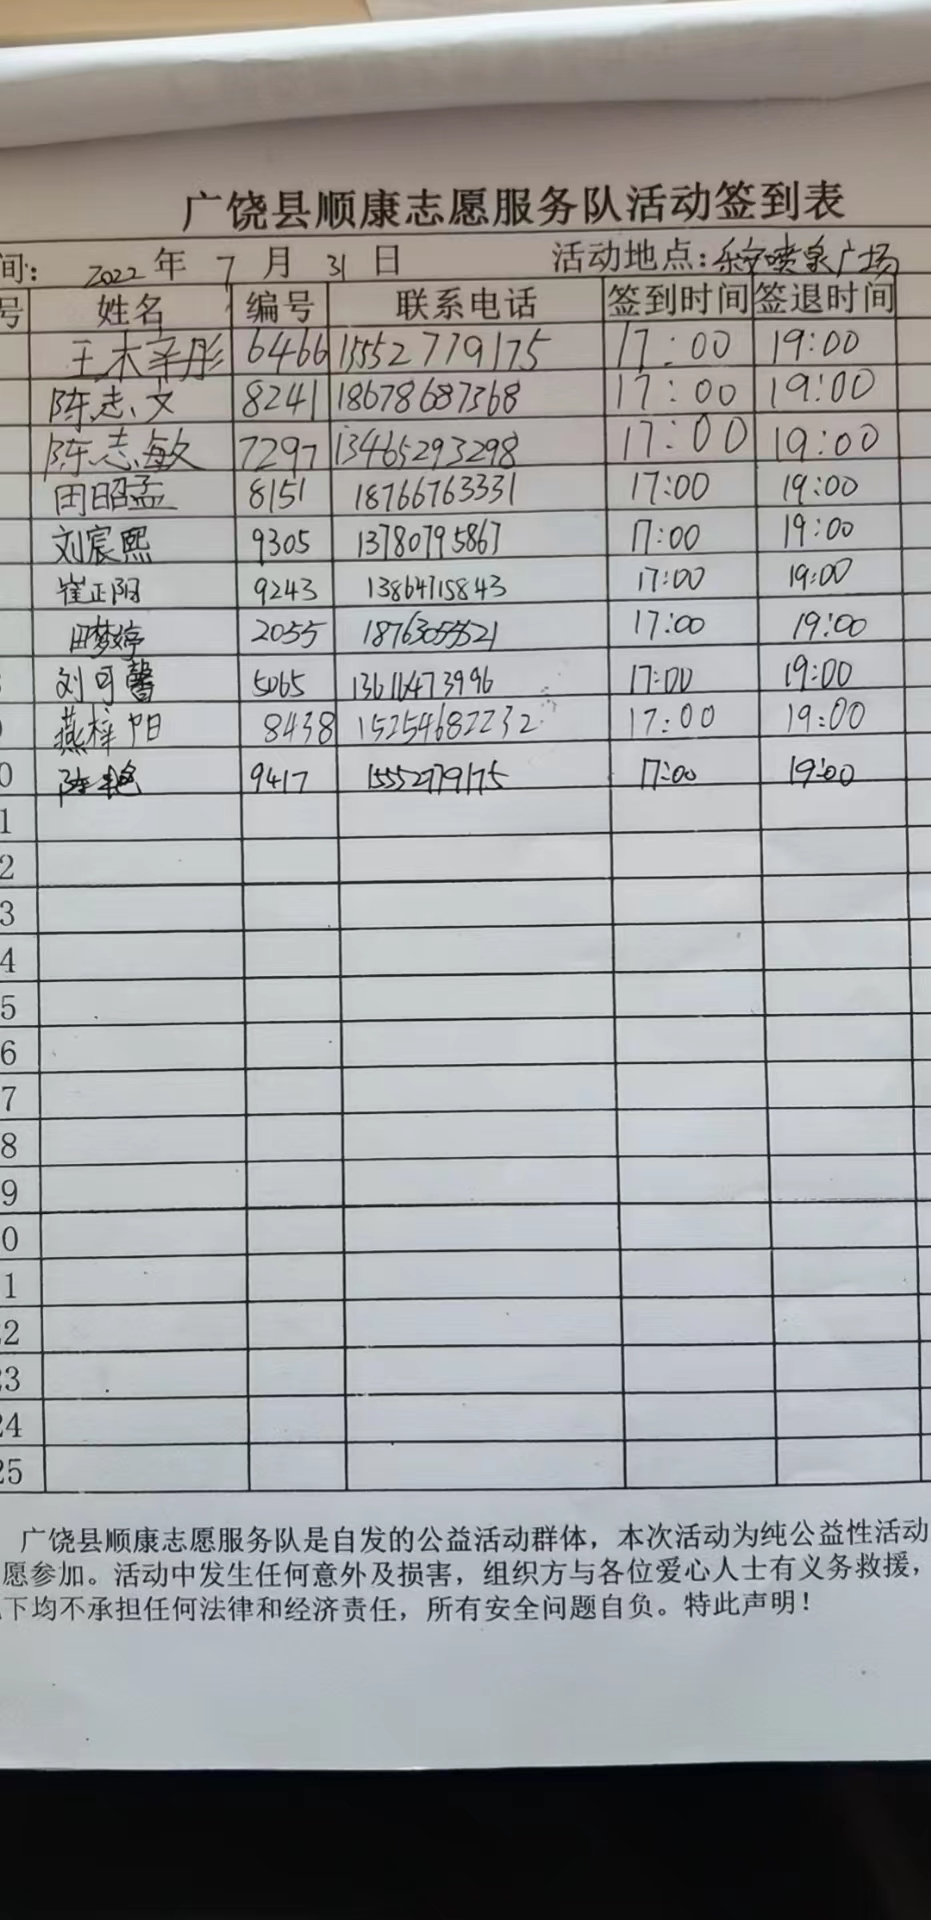 广饶县顺康志愿服务队活动签到表
间: 2022 年 7 月 31 日 活动地点:乐安喷泉广场
号 姓名 编号 联系电话 签到时间 签退时间
王梓彤 6466 15552779175 17:00 19:00
陈志文 8241 18678687368 17:00 19:00
陈志敏 7297 13465293298 17:00 19:00
田昭孟 8151 18766763331 17:00 19:00
刘宸熙 9305 13780795867 17:00 19:00
崔正阳 9243 13864715843 17:00 19:00
田梦婷 2055 17:00 19:00
刘可馨 5065 13616473996 17:00 19:00
燕梓阳 8438 15254682232 17:00 19:00
0 陈艳 9417 15552779175 17:00 19:00
1
2
3
4
5
6
7
8
9
0
1
22
23
24
25
广饶县顺康志愿服务队是自发的公益活动群体，本次活动为纯公益性活动
愿参加。活动中发生任何意外及损害，组织方与各位爱心人士有义务救援，
下均不承担任何法律和经济责任，所有安全问题自负。特此声明！